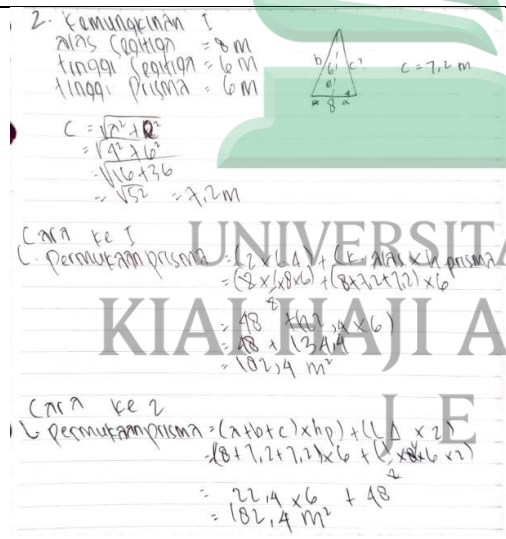 2. Kemungkinan I
alas segitiga = 8 m
tinggi segitiga = 6 m
tinggi prisma = 6 m
b 6 c?
e
8 a
c = 7,2 m
C = √a² + e²
= √4² + 6²
= √16 + 36
= √52 = 7,2 m
Cara ke I
L. permukaan prisma = (2 x L Δ) + (k. alas x h prisma
= (2 x 1/2 x 8 x 6) + (8+7,2+7,2) x 6
= 48 + (22,4 x 6)
= 48 + 134,4
= 182,4 m²
Cara ke 2
L permukaan prisma = (a+b+c) x hp) + (L Δ x 2)
= (8+7,2+7,2) x 6 + (1/2 x 8 x 6 x 2)
= 22,4 x 6 + 48
= 182,4 m²
UNIVERSITA
KIAI HAJI A
J E